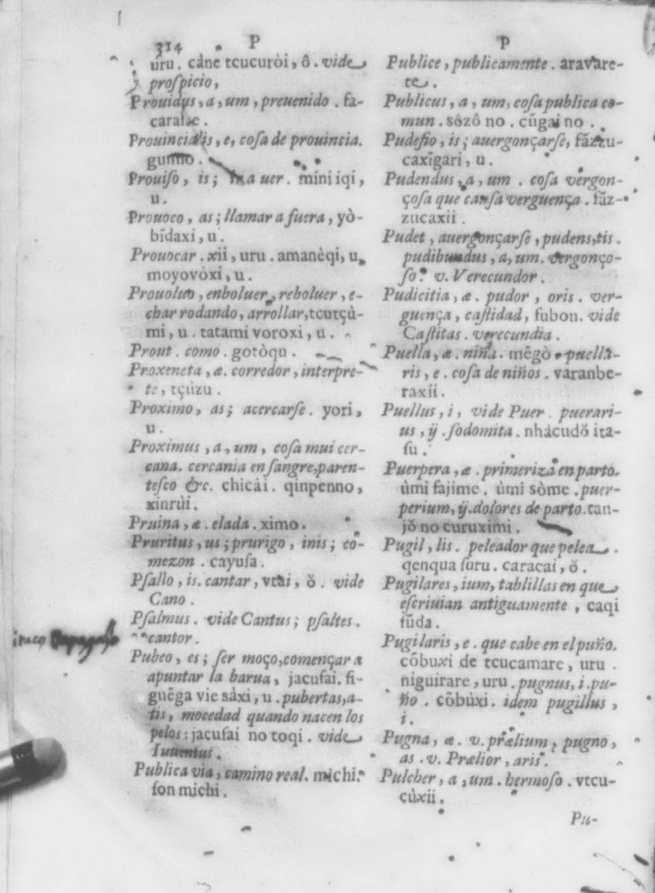 314 P
uru. cáne tcucuròi, ô. vide
prospicio,
Prouidus, a, um, preuenido. fa-
carabe.
Prouincialis, e, cosa de prouincia.
gunno.
Prouiso, is; ir a uer. mini iqi,
u.
Prouoco, as; llamar a fuera, yò-
bidaxi, u.
Prouocar. xii, uru. amanèqi, u,
moyovòxi, u.
Prouoluo, enboluer, reboluer, e-
char rodando, arrollar, tcutçù-
mi, u. tatami voroxi, u.
Prout. como. gotòqu.
Proxeneta, æ. corredor, interpre-
te, tçúzu.
Proximo, as; acercarse. yori,
u.
Proximus, a, um, cosa mui cer-
cana. cercania en sangre, paren-
tesco &c. chicái. qinpenno,
xinrúi.
Pruina, æ. elada. ximo.
Pruritus, us; prurigo, inis; co-
mezon. cayusa.
Psallo, is. cantar, vtai, ŏ. vide
Cano.
Psalmus. vide Cantus; psaltes.
cantor.
Pubeo, es; ser moço, començar a
apuntar la barua, jacufai. fi-
guêga vie sàxi, u. pubertas, a-
tis, mocedad quando nacen los
pelos: jacufai no toqi. vide
Iuuentus.
Publica via, camino real. michi.
fon michi.
P
Publice, publicamente. aravare-
te.
Publicus, a, um, cosa publica co-
mun. sôzô no. cũgai no.
Pudefio, is; auergonçarse, fàzzu-
caxigari, u.
Pudendus, a, um. cosa vergon-
çosa que causa verguença. fàz-
zucaxii.
Pudet, auergonçarse, pudens, tis.
pudibundus, a, um. vergonço-
so. v. Verecundor.
Pudicitia, æ. pudor, oris. ver-
guença, castidad, fubon. vide
Castitas. verecundia.
Puella, æ. niña. mêgò puella-
ris, e. cosa de niños. varanbe-
raxii.
Puellus, i, vide Puer. puerari-
us, ÿ. sodomita. nhácudŏ ita-
su.
Puerpera, æ. primeriza en parto.
úmi fajime. úmi sòme. puer-
perium, ÿ. dolores de parto. tan-
jŏ no curuximi.
Pugil, lis. peleador que pelea.
qenqua furu. caracai, ŏ.
Pugilares, ium, tablillas en que
escriuian antiguamente, caqi
fũda.
Pugilaris, e. que cabe en el puño.
còbuxi de tcucamare, uru.
niguirare, uru. pugnus, i. pu-
ño. còbùxi. idem pugillus,
i.
Pugna, æ. v. prælium, pugno,
as. v. Prælior, aris.
Pulcher, a, um. hermoso. vtcu-
cùxii.
Pu-